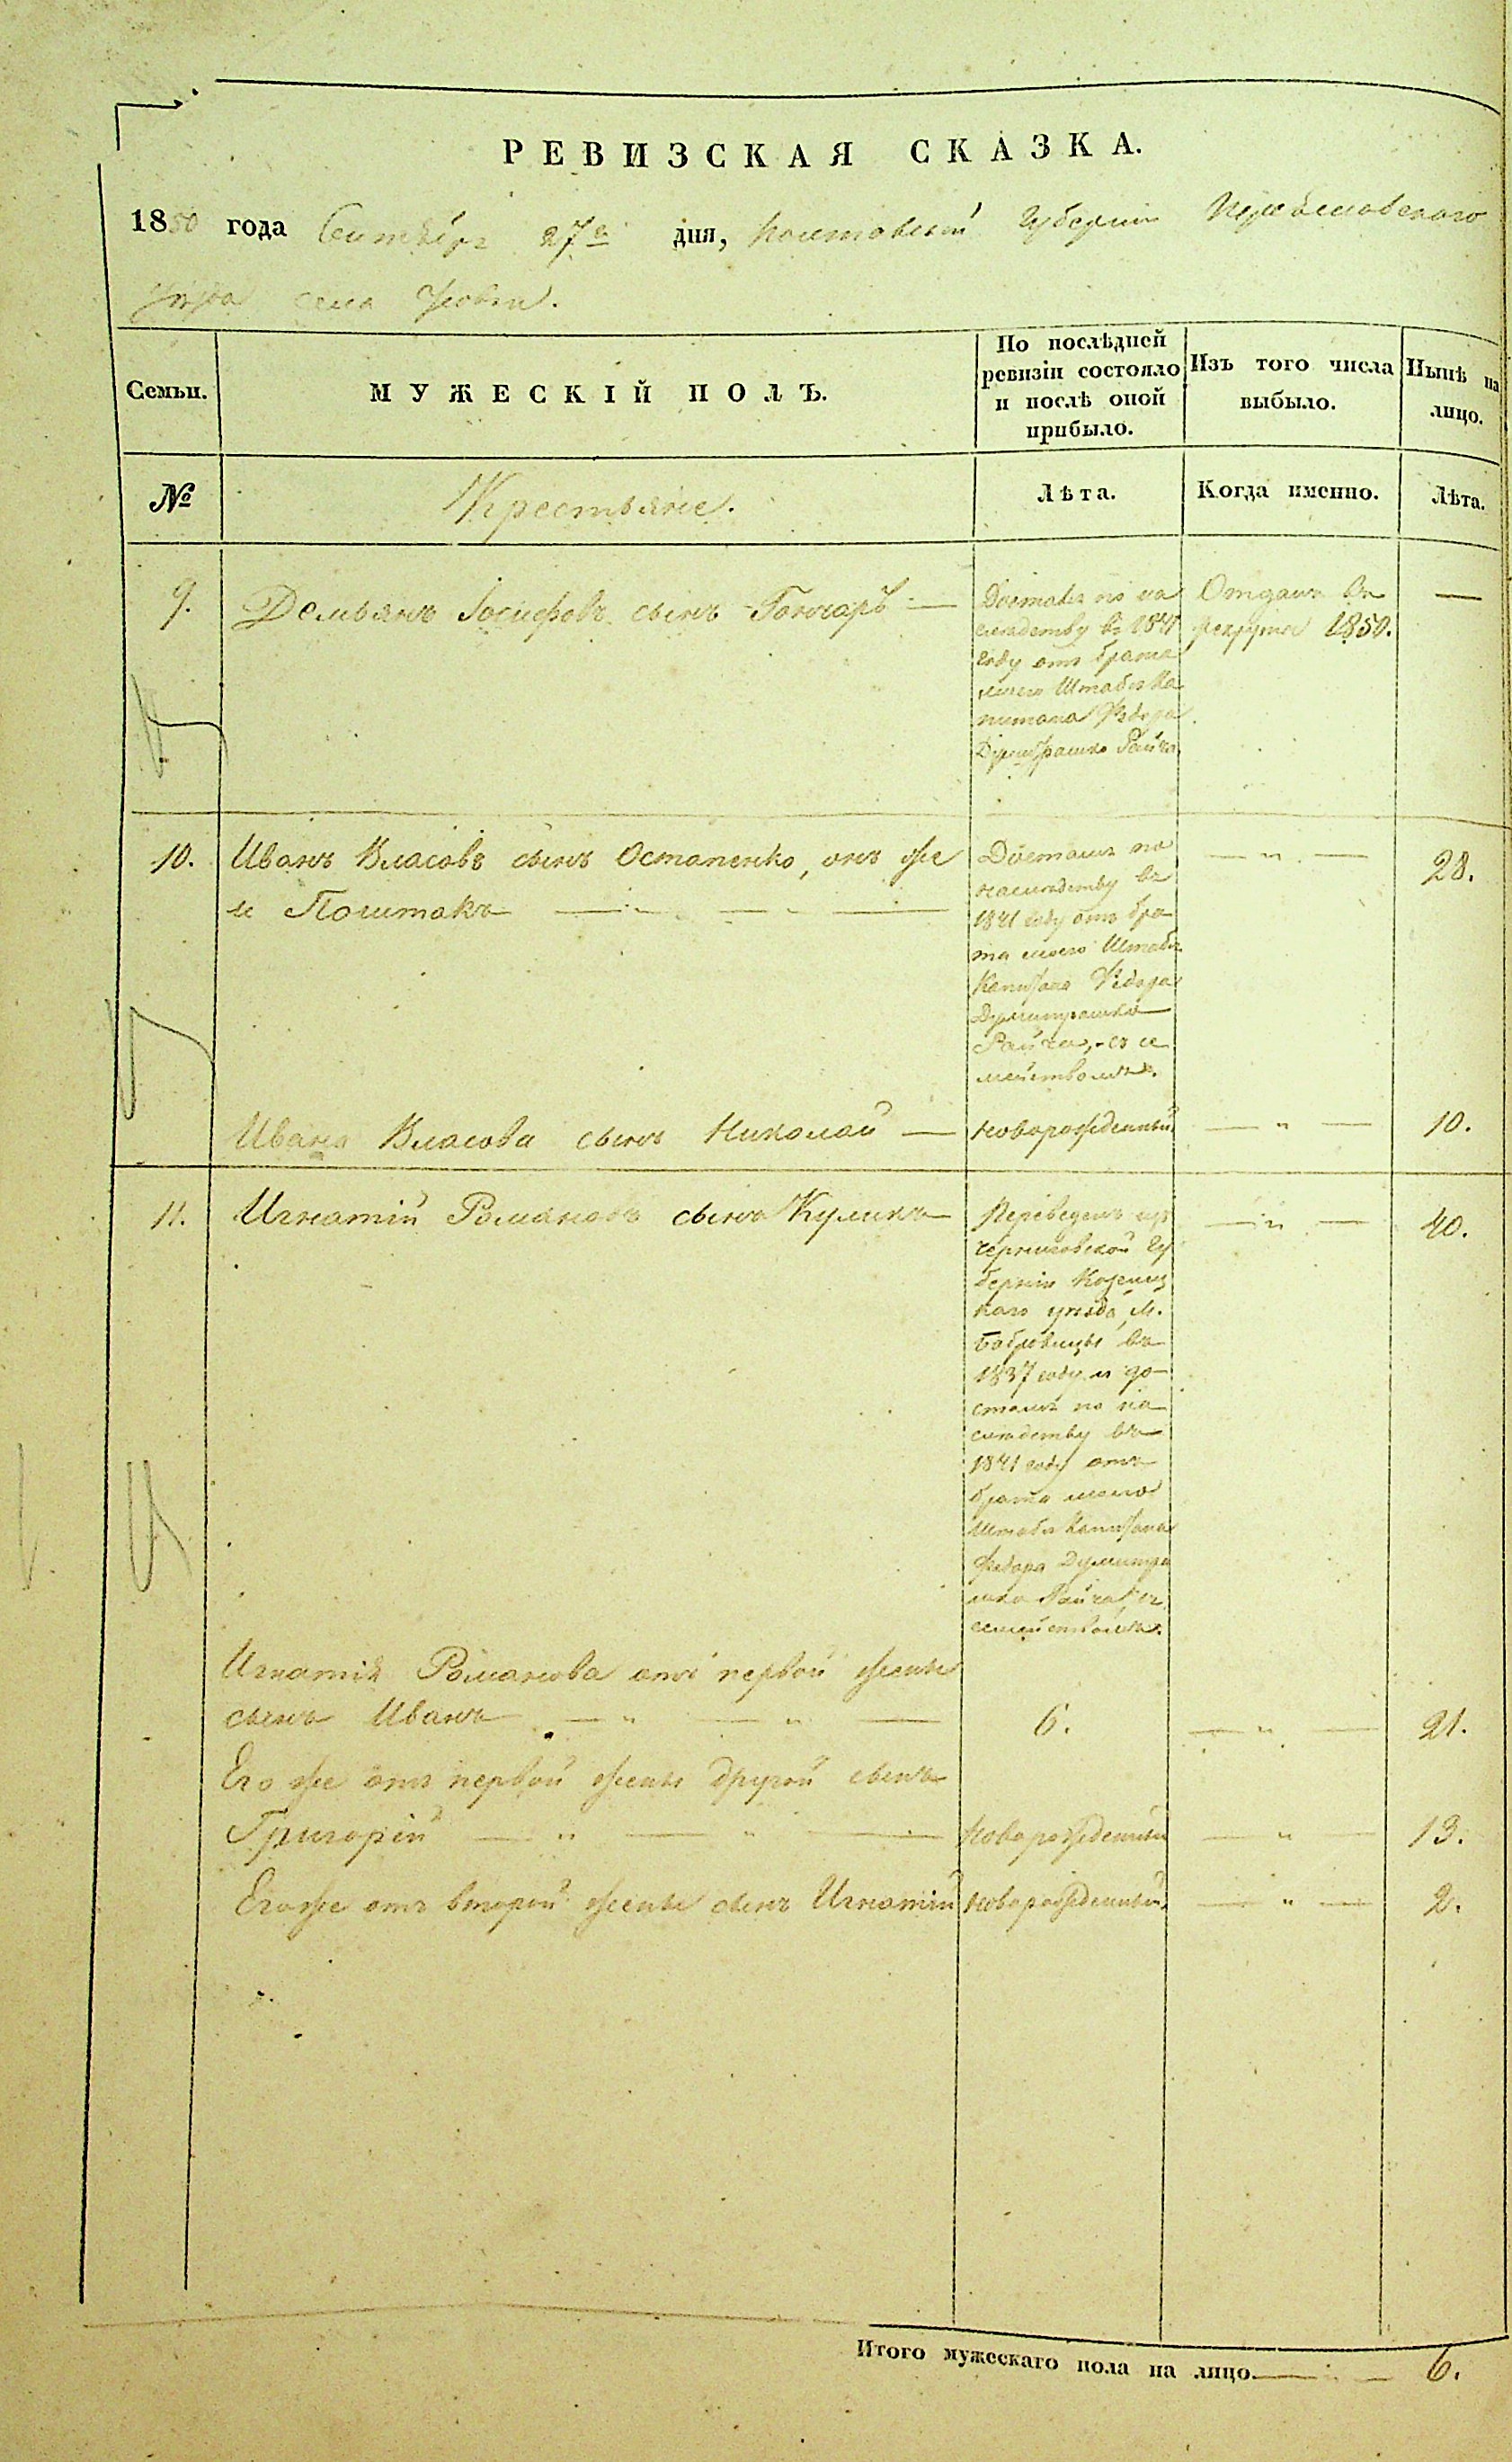 РЕВИЗСКАЯ СКАЗКА.
1850 года Сентября 27го дня, Полтавской Губерніи Переяславского
уѣзда села
Семьи.
МУЖЕСКІЙ ПОЛЪ.
По послѣдней
ревизіи состояло
и послѣ оной
прибыло.
Изъ того числа
выбыло.
Нынѣ на
лицо.
№
Крестьяне.
Лѣта.
Когда именно.
Лѣта.
9.
Демьянъ Іосифовъ сынъ Гончаръ —
Досталъ по на
слѣдству въ 1841
году отъ брата
моего Штабсъ Ка
питана Федора
Думитрашко Райча.
Отданъ въ
рекруты 1850.
—
10.
Иванъ Власовъ сынъ Остапенко, онъ же
и Полштакъ — " — " —
Досталъ по
наслѣдству въ
1841 году отъ бра
та моего Штабсъ
Капитана Федора
Думитрашко
Райча, съ се
мействомъ.
— " —
28.
Ивана Власова сынъ Николай —
новорожденный
— " —
10.
11.
Игнатій Романовъ сынъ Куликъ
Переведенъ изъ
Черниговской Гу
берніи Козелец
каго уѣзда, М.
Бобровицы въ
1837 году и до
сталъ по на
слѣдству въ
1841 году отъ
брата моего
Штабсъ Капитана
Федора Думитра
шко Райча, съ
семействомъ.
— " —
40.
Игнатія Романова отъ первой жены
сынъ Иванъ — " — " —
6.
— " —
21.
Его же отъ первой жены другой сынъ
Григорій — " — " —
Новорожденный
— " —
13.
Его же отъ второй жены сынъ Игнатій
новорожденный.
— " —
2.
Итого мужескаго пола на лицо — 6.